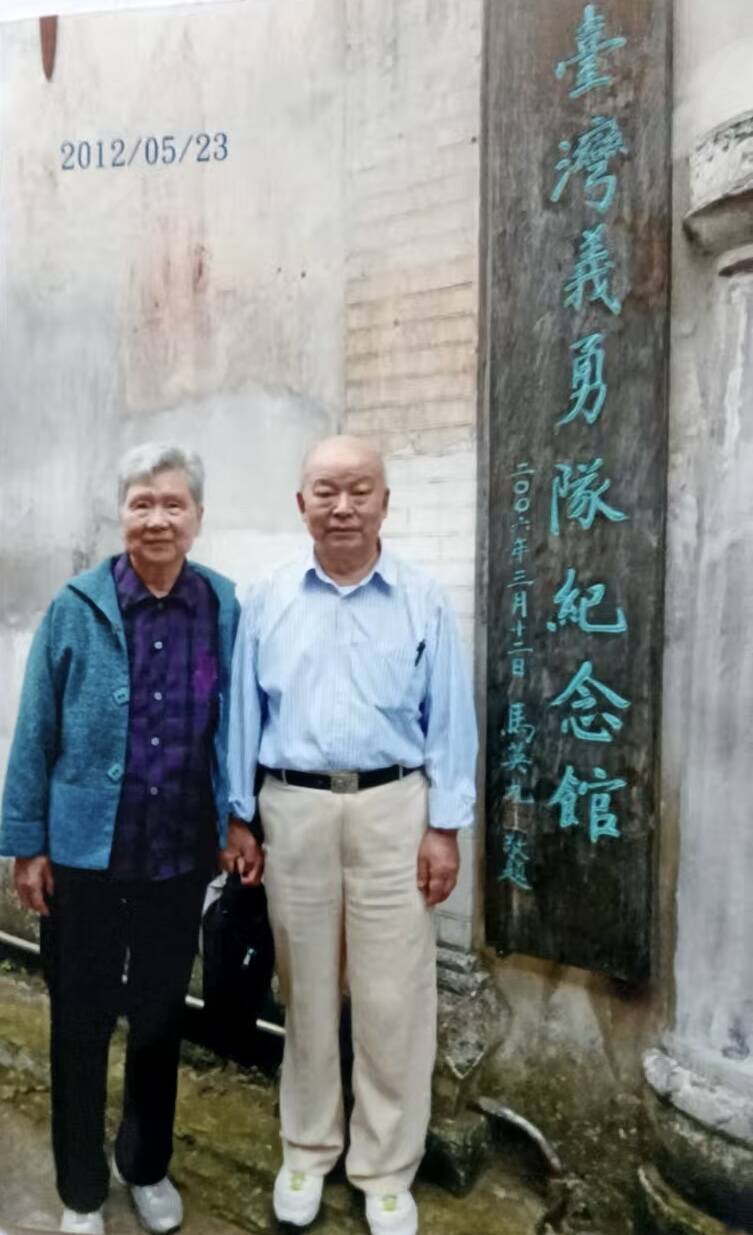 2012/05/23
臺灣義勇隊紀念館
二〇〇六年三月十二日 馬英九 敬題